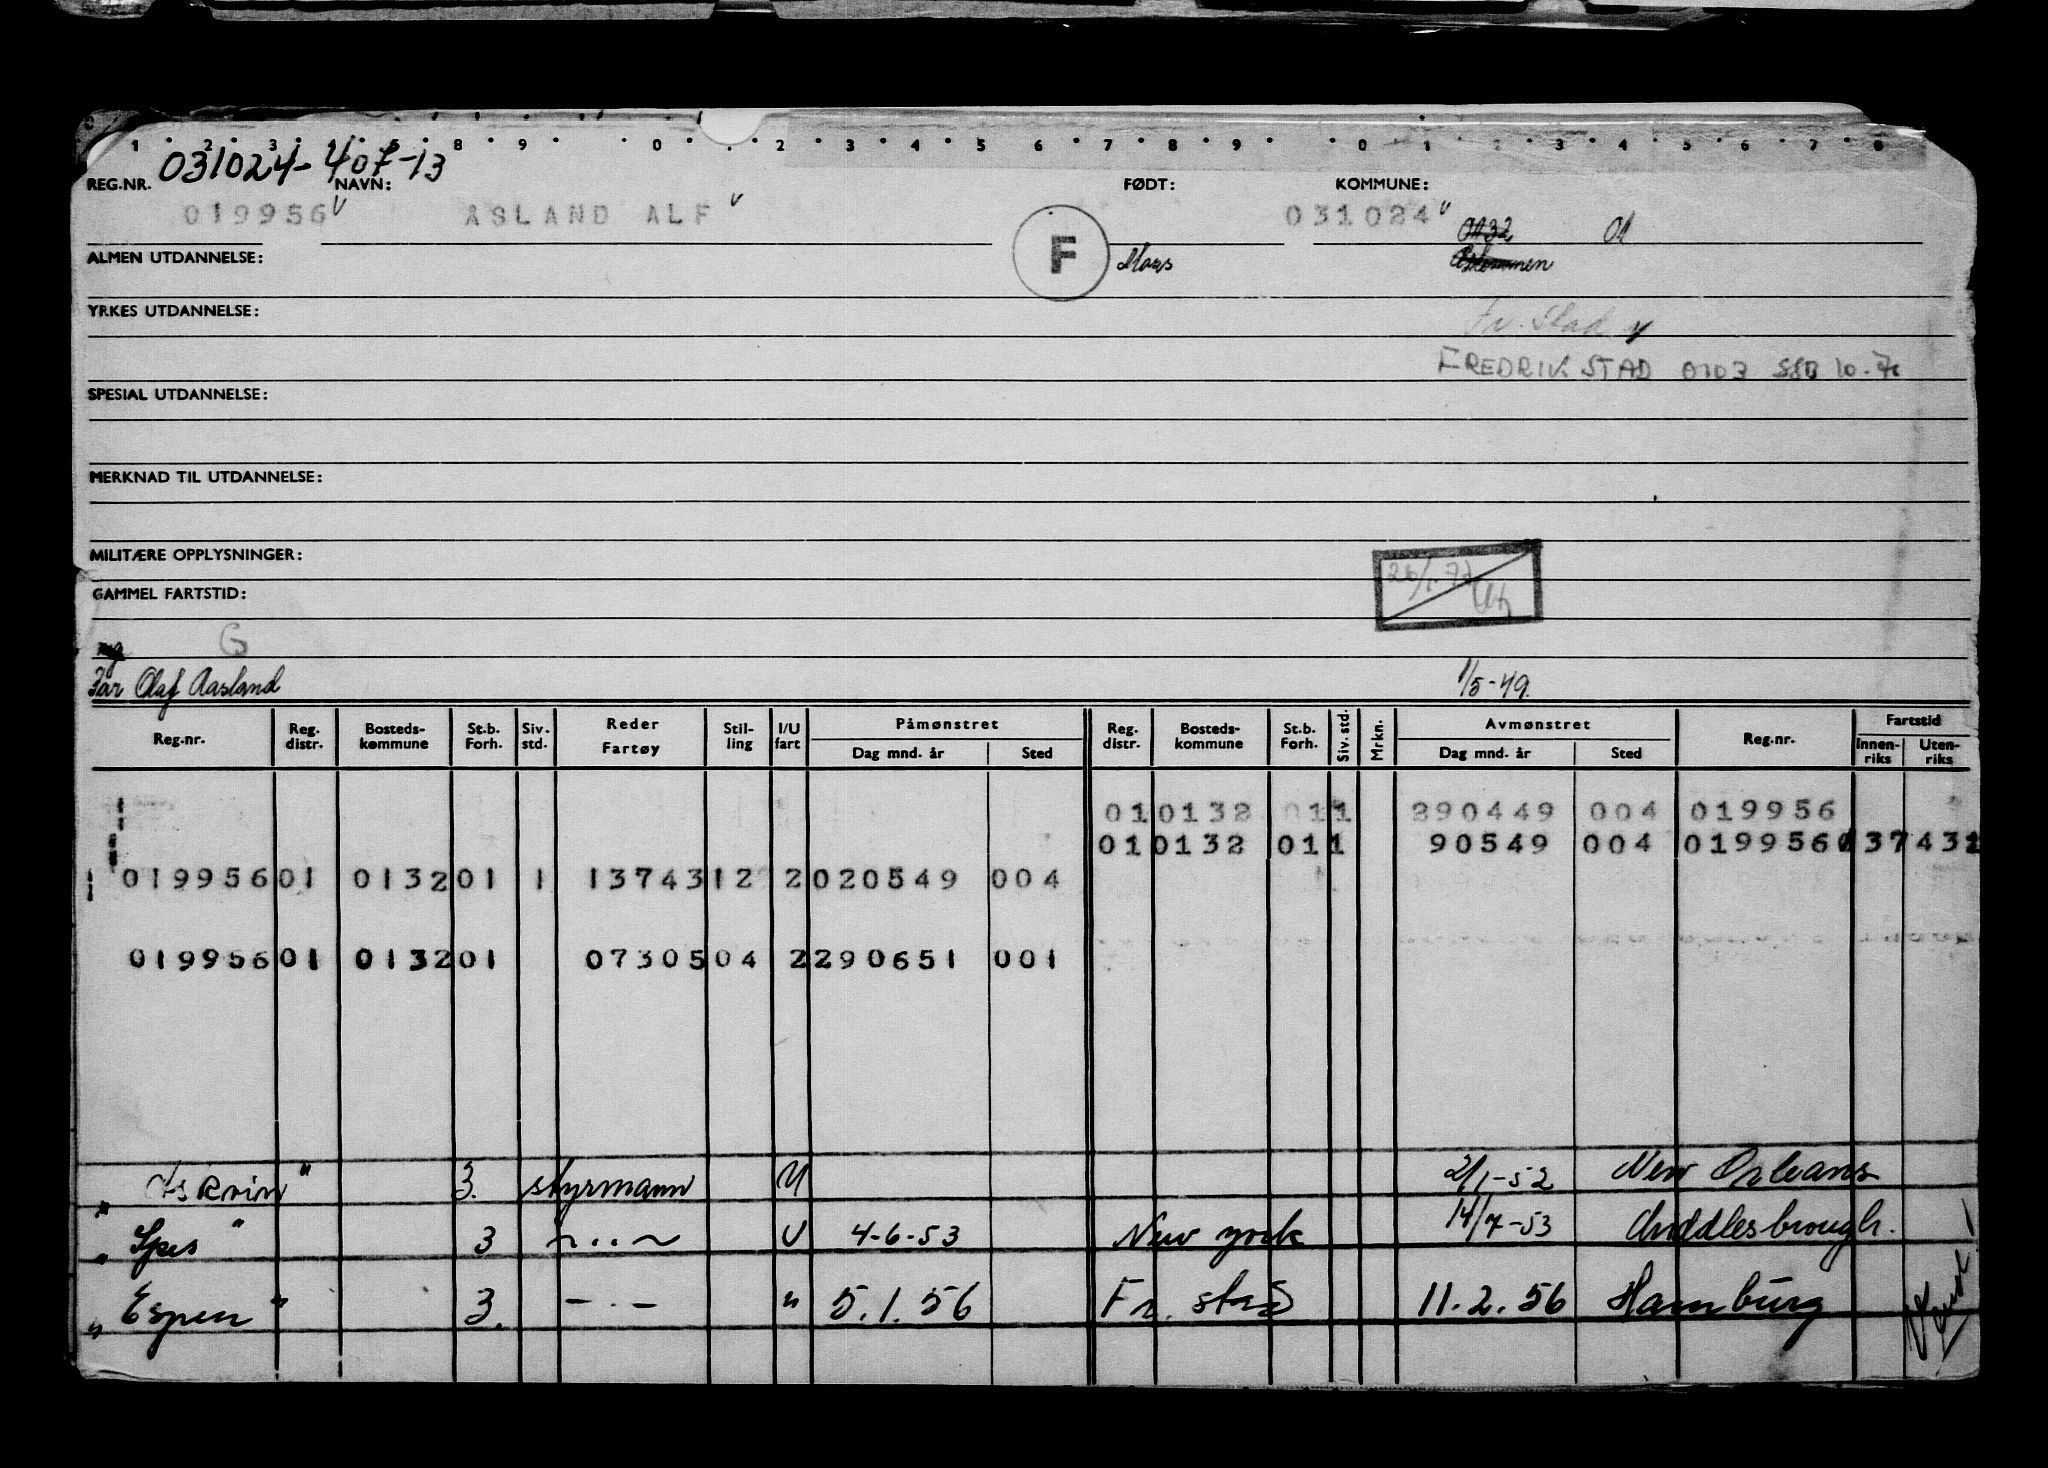 1 2 3 8 9 0 2 3 4 5 6 7 8 9 0 1 2 3 4 5 6 7 8
031024-407-13
REG.NR. NAVN: FØDT: KOMMUNE:
019956 ÅSLAND ALF 031024 0132 01
F Moss
ALMEN UTDANNELSE:
YRKES UTDANNELSE: Fr. Stad
FREDRIKSTAD 0103 SSB 10-70
SPESIAL UTDANNELSE:
MERKNAD TIL UTDANNELSE:
MILITÆRE OPPLYSNINGER:
GAMMEL FARTSTID:
G
Far Olaf Aasland 1/5-49.
Reg.nr. Reg. distr. Bosteds-kommune St.b. Forh. Siv. std. Reder Fartøy Stil-ling I/U fart Påmønstret Dag mnd. år Sted Reg. distr. Bosteds-kommune St.b. Forh. Siv. std. Mrkn. Avmønstret Dag mnd. år Sted Reg.nr. Fartstid Innen-riks Uten-riks
01 0132 01 1 290449 004 019956
01 0132 01 1 90549 004 019956 137431
019956 01 0132 01 1 13743 12 2 020549 004
019956 01 0132 01 07305 04 2 290651 001
" Askvin " 3. styrmann U 2/1-52 New Orleans
" Spes " 3 -..- U 4-6-53 New york 14/7-53 Middlesbrough.
" Espen " 3. -.- " 5.1.56 Fr. stad 11.2.56 Hamburg